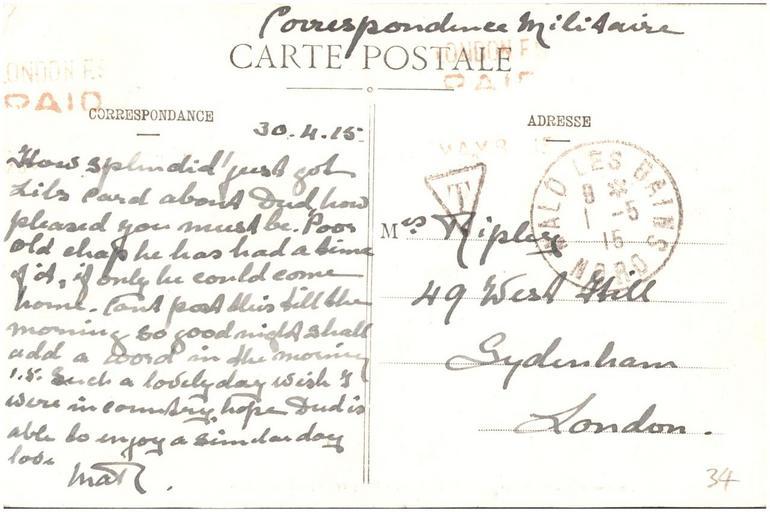 Correspondence Militaire
CARTE POSTALE
LONDON F.S
PAID
LONDON F.S
PAID
CORRESPONDANCE
ADRESSE
30.4.15
How splendid! just got
Lils card about Dud, how
pleased you must be. Poor
old chap he has had a time
of it, if only he could come
home. Cant post this till the
morning so good night shall
add a word in the morning
1.5. Such a lovely day wish I
were in country, hope Dud is
able to enjoy a similar day
love
T
MALO LES BAINS
8
1 - 5
15
NORD
Mrs Ripley
49 West Hill
Sydenham
London.
34